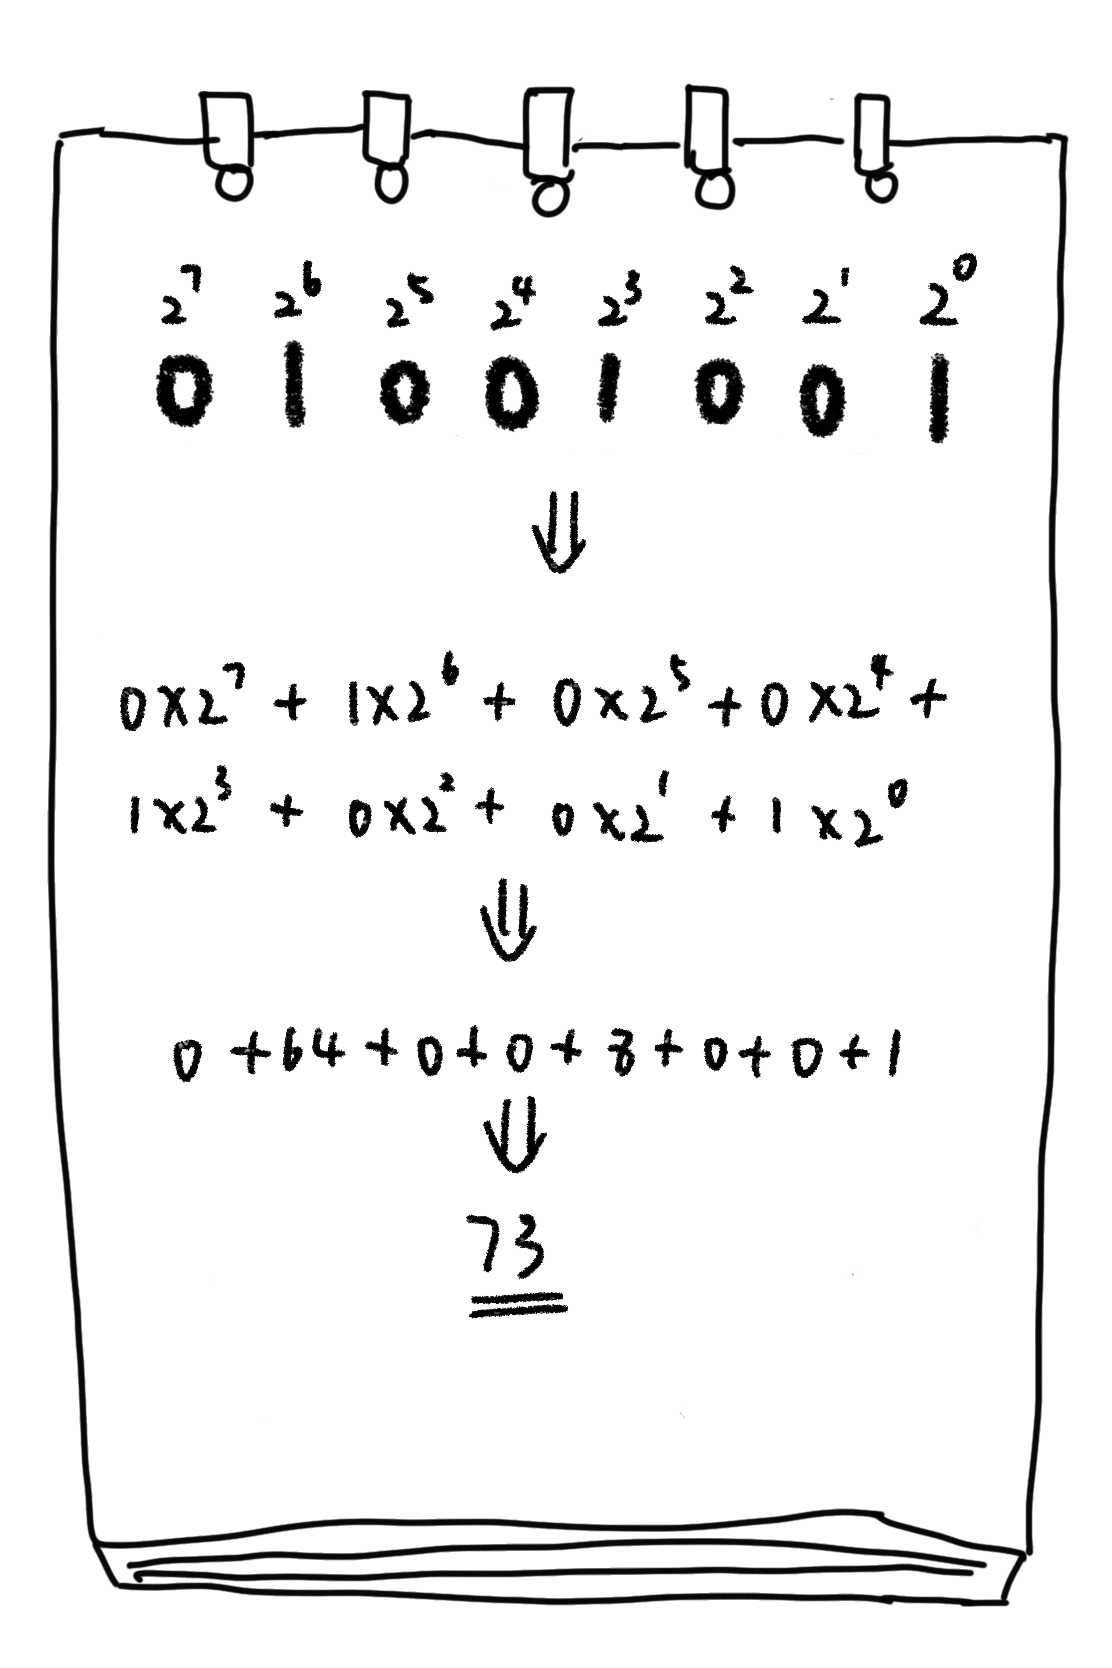 2⁷ 2⁶ 2⁵ 2⁴ 2³ 2² 2¹ 2⁰
0 1 0 0 1 0 0 1
⇓
0×2⁷ + 1×2⁶ + 0×2⁵ + 0×2⁴ +
1×2³ + 0×2² + 0×2¹ + 1×2⁰
⇓
0 + 64 + 0 + 0 + 8 + 0 + 0 + 1
⇓
73